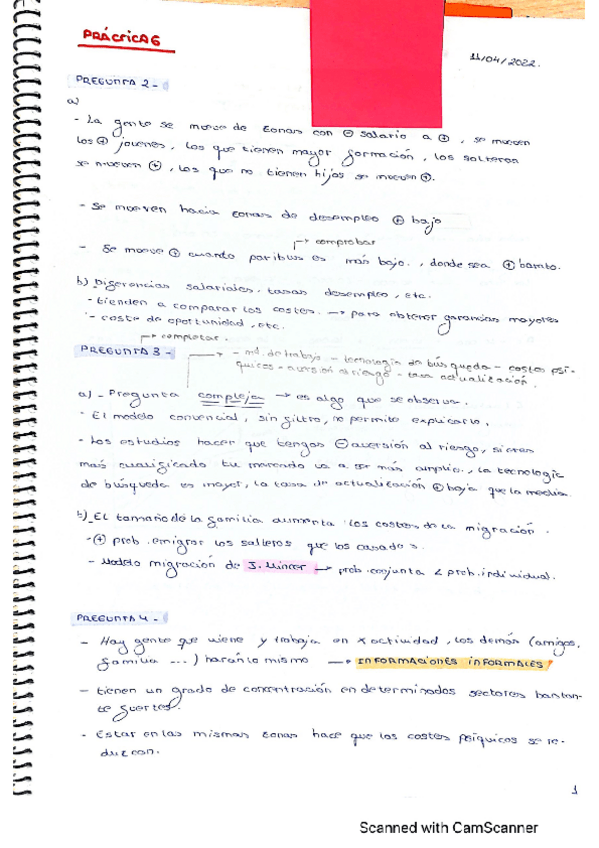 PRÁCTICA 6
11/04/2022.
PREGUNTA 2 -
a)
- La gente se mueve de zonas con ⊖ salario a ⊕, se mueven
los ⊕ jovenes, los que tienen mayor formación, los solteros
se mueven ⊕, los que no tienen hijos se mueven ⊕.
- Se mueven hacia zonas de desempleo ⊕ bajo
→ comprobar
- Se mueve ⊕ cuando paribus es más bajo., donde sea ⊕ barato.
b) Diferencias salariales, tasas desempleo, etc.
- tienden a comparar los costes. → para obtener ganancias mayores
- coste de oportunidad, etc.
→ completar.
PREGUNTA 3 -
- md. de trabajo - tecnología de búsqueda - costes psí-
quicos - aversión al riesgo - tasa actualización.
a) - Pregunta compleja → es algo que se observa.
- El modelo convencial, sin filtro, no permite explicarlo.
- Los estudios hacer que tengas ⊖ aversión al riesgo, si eres
mas cualificado tu mercado va a ser más amplio., la tecnologia
de búsqueda es mayor, la tasa de actualización ⊕ baja que la media.
b) - El tamaño de la familia aumenta los costes de la migración.
- ⊕ prob. emigrar los solteros que los casados.
- Modelo migración de J. Mincer → prob. conjunta < prob. individual.
PREGUNTA 4 -
- Hay gente que viene y trabaja en x actividad, los demás (amigos,
familia ...) harán lo mismo → INFORMACIONES INFORMALES
- tienen un grado de concentración en determinados sectores bastan-
te fuertes.
- Estar en las mismas zonas hace que los costes psíquicos se re-
duzcan.
1
Scanned with CamScanner